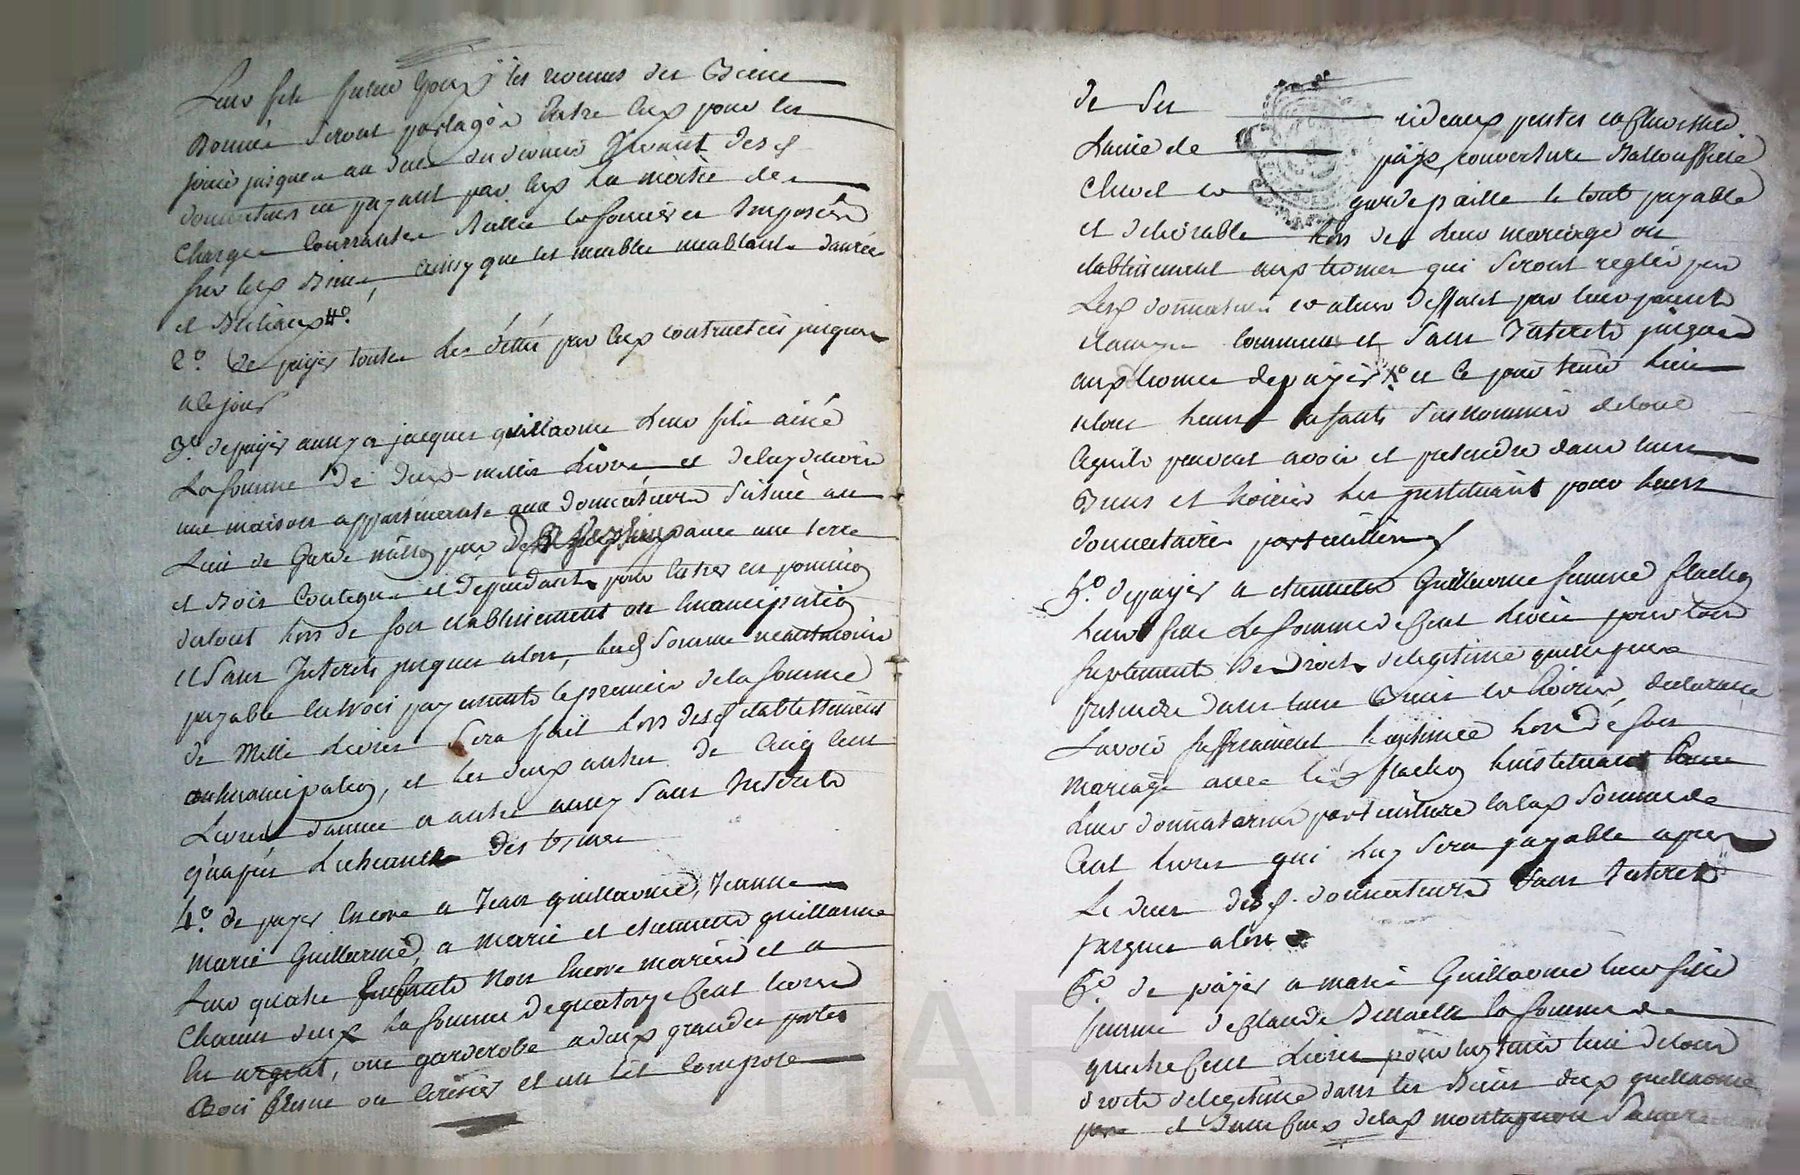 Leur fils futur Epoux les revenus des Biens
Donnés seront partagés Entre Eux pour les
jouir jusques au deces du dernier vivant desd
donnateurs en payant par Eux la moitié des
Charges Courrantes Tailles et fonciers Imposées
sur lesd Biens, ainsy que les meubles meublants danrées
et Bestiaux
2º. de payer toutes les dettes par Eux contractées jusques
a ce jour
3º. de payer aussy a jacques guillaome Leur fils ainé
La somme de deux mille Livres et de luy delivrer
une maison appartenante aux donnateurs scituée au
Lieu de avec une terre
et Bois Contigus et dependants pour Entrer en possession
du tout lors de son etablissement ou Emancipation
et sans Interets jusques alors, lad somme neantmoins
payable En trois payements le premier de la somme
de Mille Livres sera fait lors desd etablissement
ou Emancipation, et les deux autres de Cinq Cent
Livres d'année a autre aussy sans Interets
qu'apres L'echeance des termes
4º. de payer Encore a Jean guillaome, Jeanne
Marie Guillaome, a Marie et guillaome
Leur quatre Enfants Non Encore mariés et a
Chacun deux La somme de quatorze Cent livres
En argent, une garderobe a deux grandes portes
Bois fresne ou Cerisier et un lit Composé
de ses rideaux pentes
Laine de pays, couverture
Chuel et gardepaille le tout payable
et delivrable lors de Leur mariage ou
etablissement aux termes qui seront reglés par
Lesd donnateurs et a leur deffaut par leur parents
communs et sans Interets jusques
aux termes de payer et Ce pour tenir Lieu
a leur Enfants susnommés de tout
Ce qu'ils peuvent avoir et pretendre dans leurs
Biens et hoiries Les instituant pour leurs
donnataires particuliers
5º. de payer a Guillaome femme flachy
Leur fille La somme de Cent Livres pour tout
suplement de Droits de legitime qu'elle peut
pretendre dans leurs Biens et hoiries, declarants
L'avoir suffisament Legitimée lors de son
Mariage avec led flachy L'instituant
Leur donnatarice particuliere En lad somme de
Cent Livres qui luy sera payable apres
Le deces desd. donnateurs sans Interets
jusques alors
6º. de payer a marie Guillaome leur fille
femme de Claude la somme de
quatre Cent Livres pour luy tenir lieu de tous
droits de legitime dans les Biens dud guillaome
pere et dans Ceux de lad